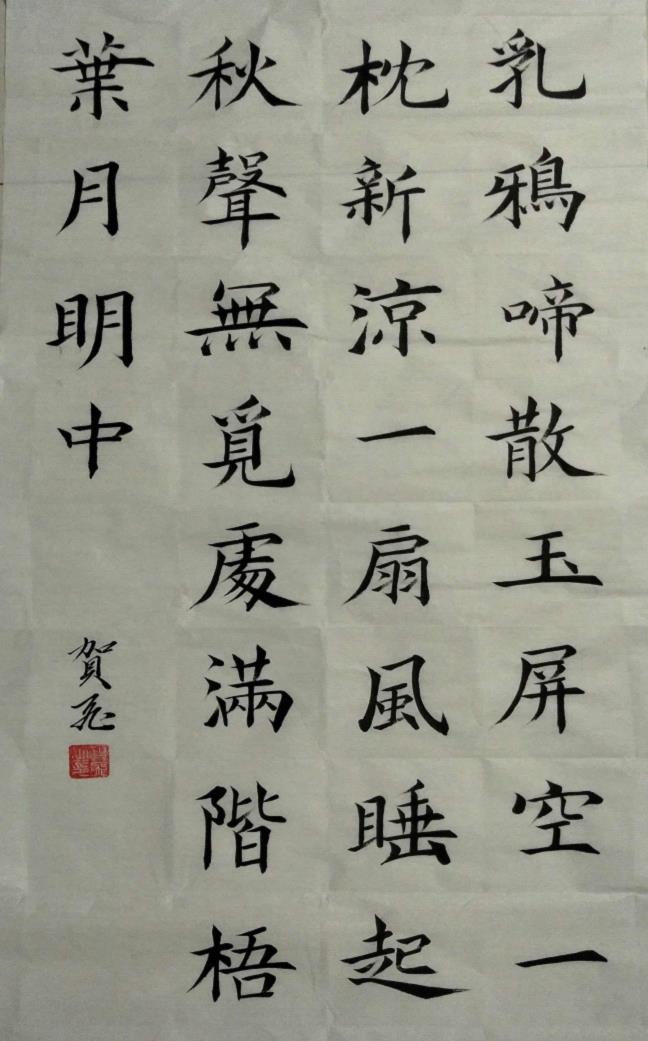 乳鴉啼散玉屏空一
枕新涼一扇風睡起
秋聲無覓處滿階梧
葉月明中
賀